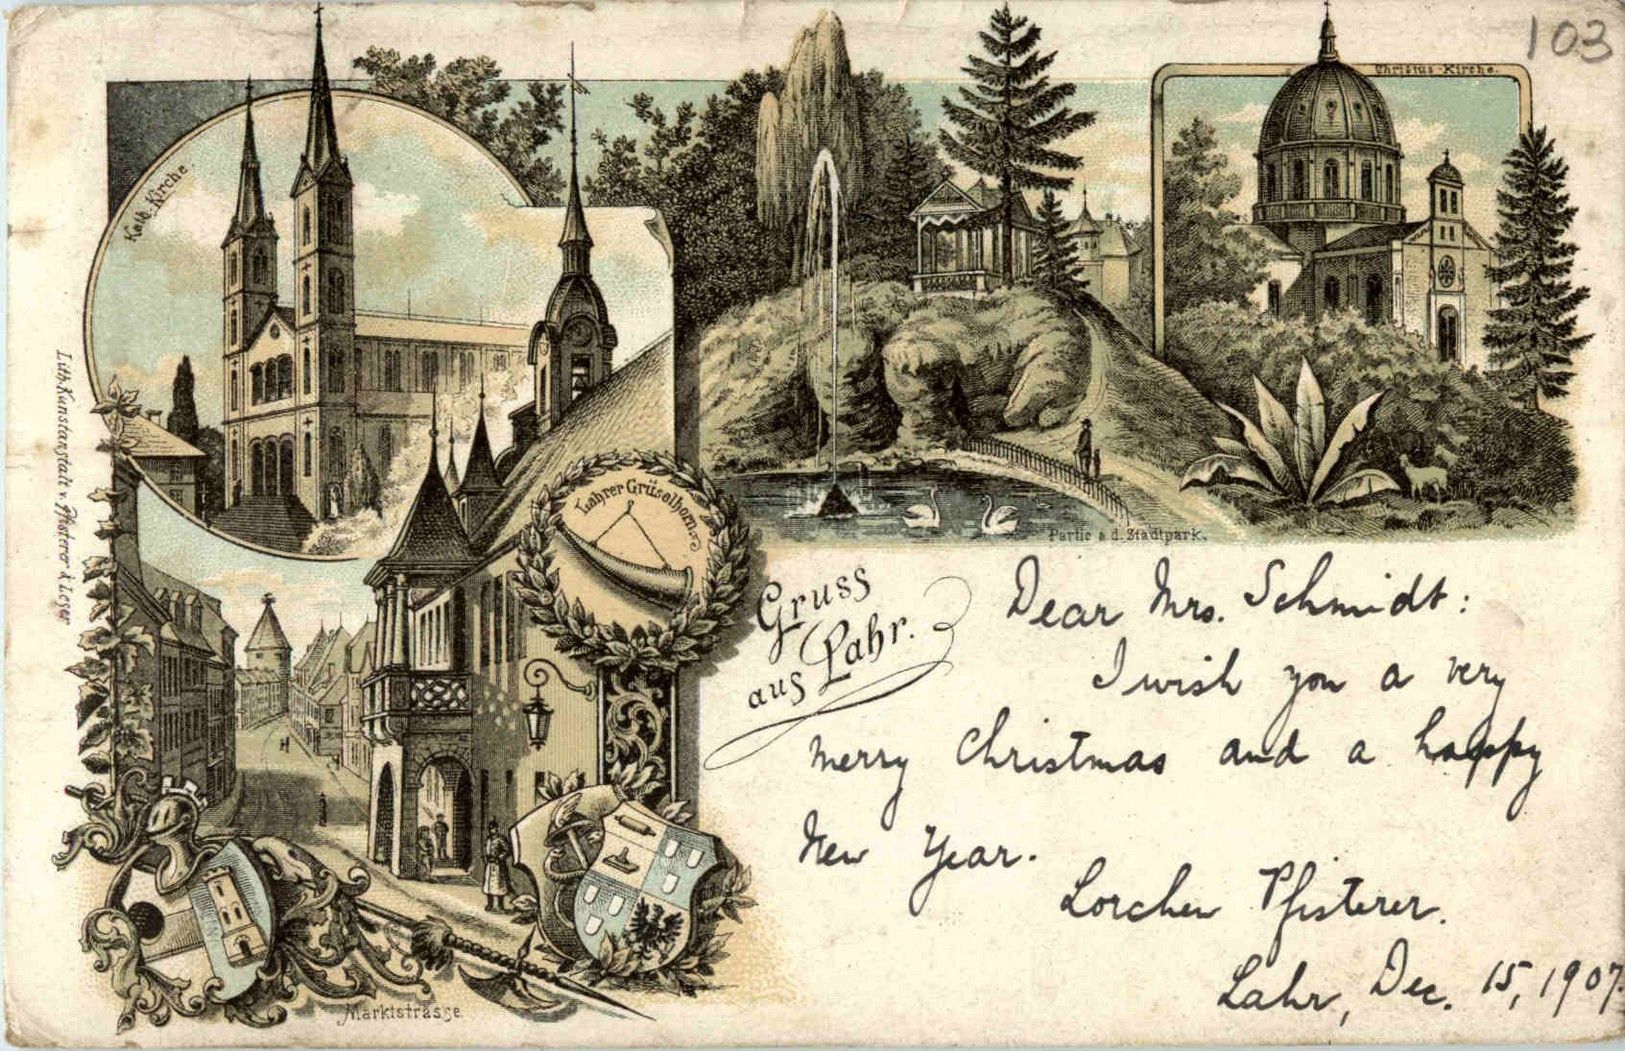 103
Christus-Kirche.
Kath. Kirche.
Lahrer Grüselhorn
Partie a. d. Stadtpark.
Lith. Kunstanstalt v. Pfisterer & Leser
Gruss
aus Lahr.
Dear Mrs. Schmidt:
I wish you a very
merry Christmas and a happy
New Year.
Lorchen Pfisterer.
Lahr, Dec. 15, 1907.
Marktstrasse.